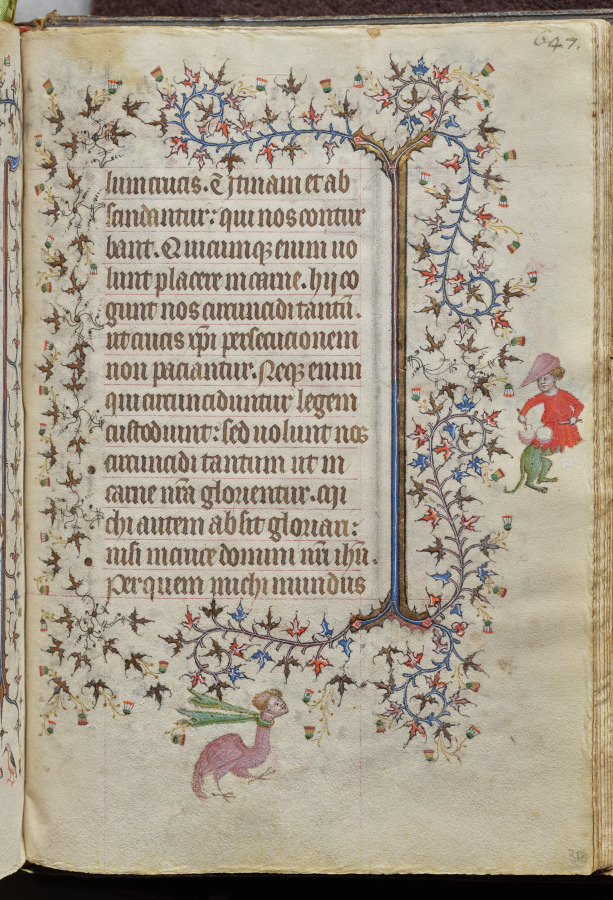 647.
lum crucis. Et Utinam et ab
scindantur: qui nos contur
bant. Quicumqz enim uo
lunt placere in carne. hij co
gunt nos circuncidi tantū.
ut crucis xp̄i persecucionem
non paciantur. Neqz enim
qui circunciduntur legem
custodiunt: sed uolunt nos
circuncidi tantum ut in
carne nr̄a glorientur. Mi
chi autem absit gloriari:
nisi in cruce domini nr̄i ihū.
Per quem michi mundus